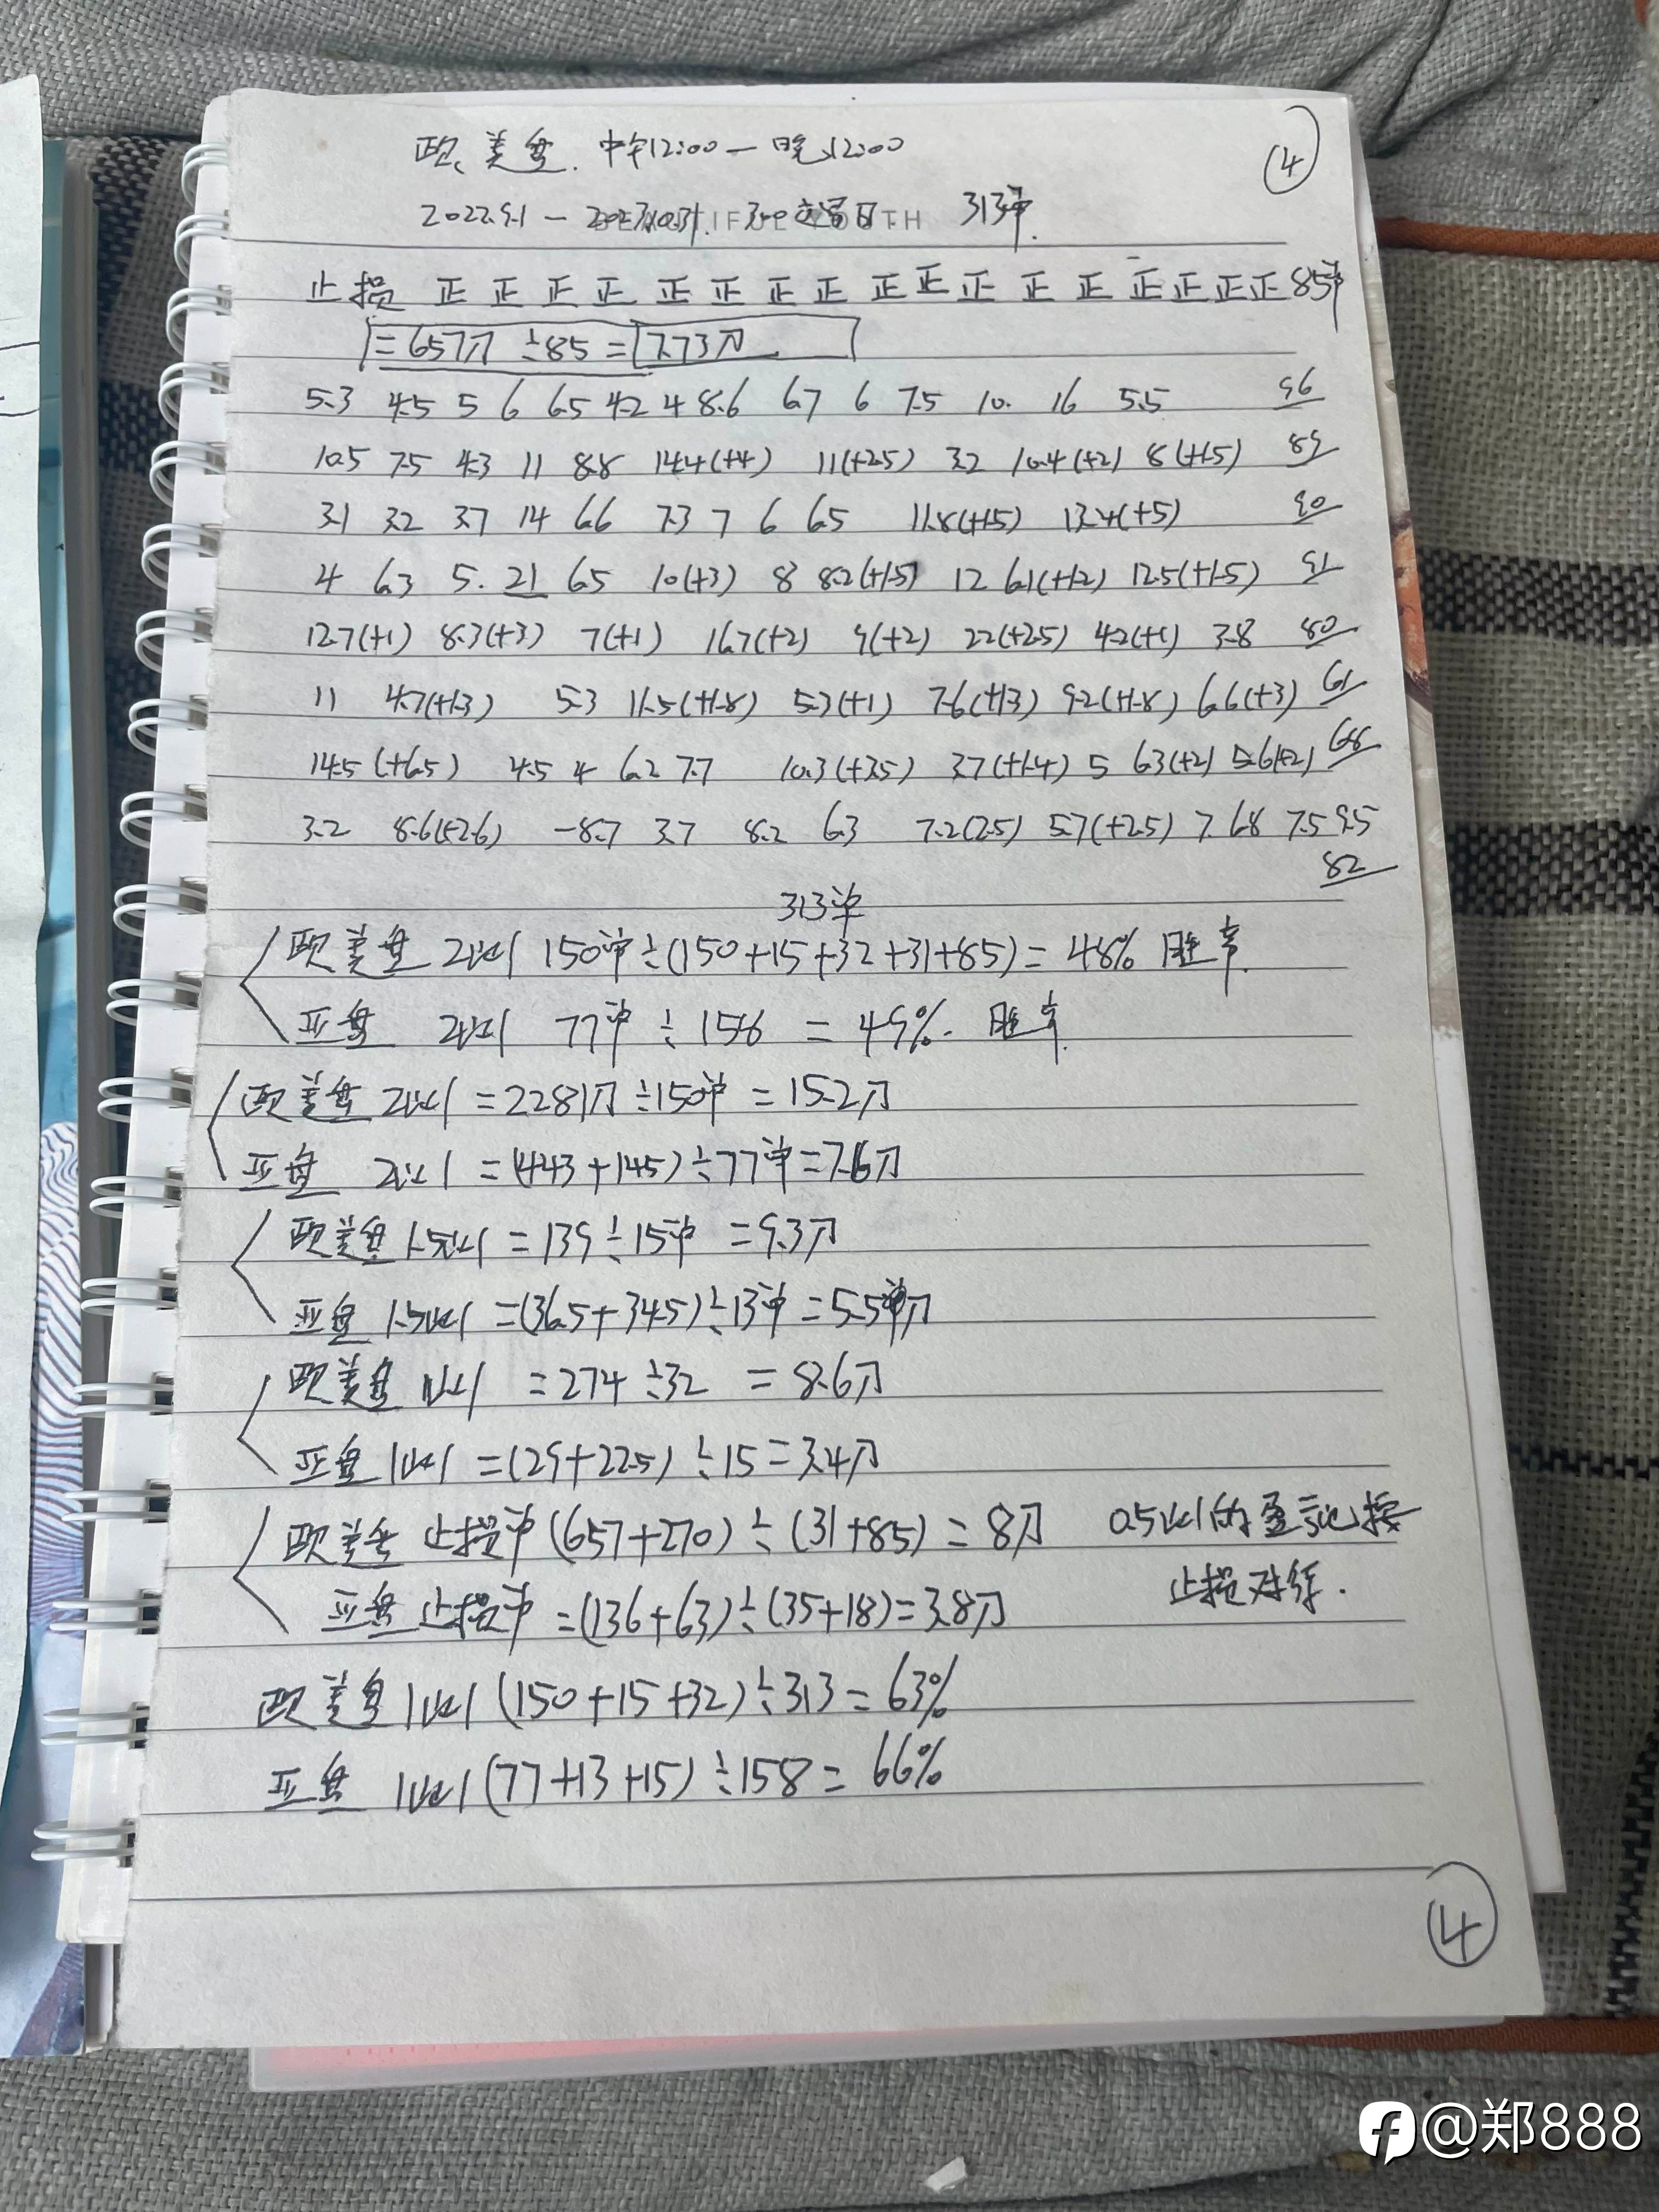 欧、美盘. 中午12:00 — 晚12:00
④
2022.9.1 — 2023.10.31. 300交易日 313单.
止损 正 正 正 正 正 正 正 正 正 正 正 正 正 正 正 正 正 85单
= 657刀 ÷85 = 7.73刀
5.3 4.5 5 6 6.5 4.2 4 8.6 6.7 6 7.5 10. 16 5.5 96
10.5 7.5 4.3 11 8.8 14.4(+4) 11(+2.5) 3.2 10.4(+2) 8(+1.5) 89
3.1 3.2 3.7 14 6.6 7.3 7 6 6.5 11.8(+1.5) 13.4(+5) 90
4 6.3 5. 21 6.5 10(+3) 8 8.2(+1.5) 12 6.1(+1.2) 12.5(+1.5) 91
12.7(+1) 8.3(+3) 7(+1) 16.7(+2) 9(+2) 22(+2.5) 4.2(+1) 3.8 80
11 4.7(+1.3) 5.3 11.5(+1.8) 5.3(+1) 7.6(+1.3) 9.2(+1.8) 6.6(+3) 61
14.5(+6.5) 4.5 4 6.2 7.7 10.3(+3.5) 3.7(+1.4) 5 6.3(+2) 5.6(+2) 68
3.2 8.6(+2.6) -8.7 3.7 8.2 6.3 7.2(2.5) 5.7(+2.5) 7 6.8 7.5 9.5
82
313单
欧美盘 2以上 150单÷(150+15+32+31+85)= 48% 胜率.
亚盘 2以上 77单 ÷ 158 = 49%. 胜率.
欧美盘 2以上 =2281刀÷150单 = 15.2刀
亚盘 2以上 =(443+145)÷77单=7.6刀
欧美盘 1.5以上 = 139÷15单 =9.3刀
亚盘 1.5以上 =(36.5+34.5)÷13单=5.5刀
欧美盘 1以上 =274÷32 = 8.6刀
亚盘 1以上 =(29+22.5) ÷15=3.4刀
欧美盘 止损单 (657+270) ÷ (31+85) = 8刀 0.5以上的盈亏比按
止损对待.
亚盘 止损单 =(136+63)÷(35+18)=3.8刀
欧美盘 1以上 (150+15+32)÷313=63%
亚盘 1以上 (77+13+15) ÷158= 66%
④
@郑888